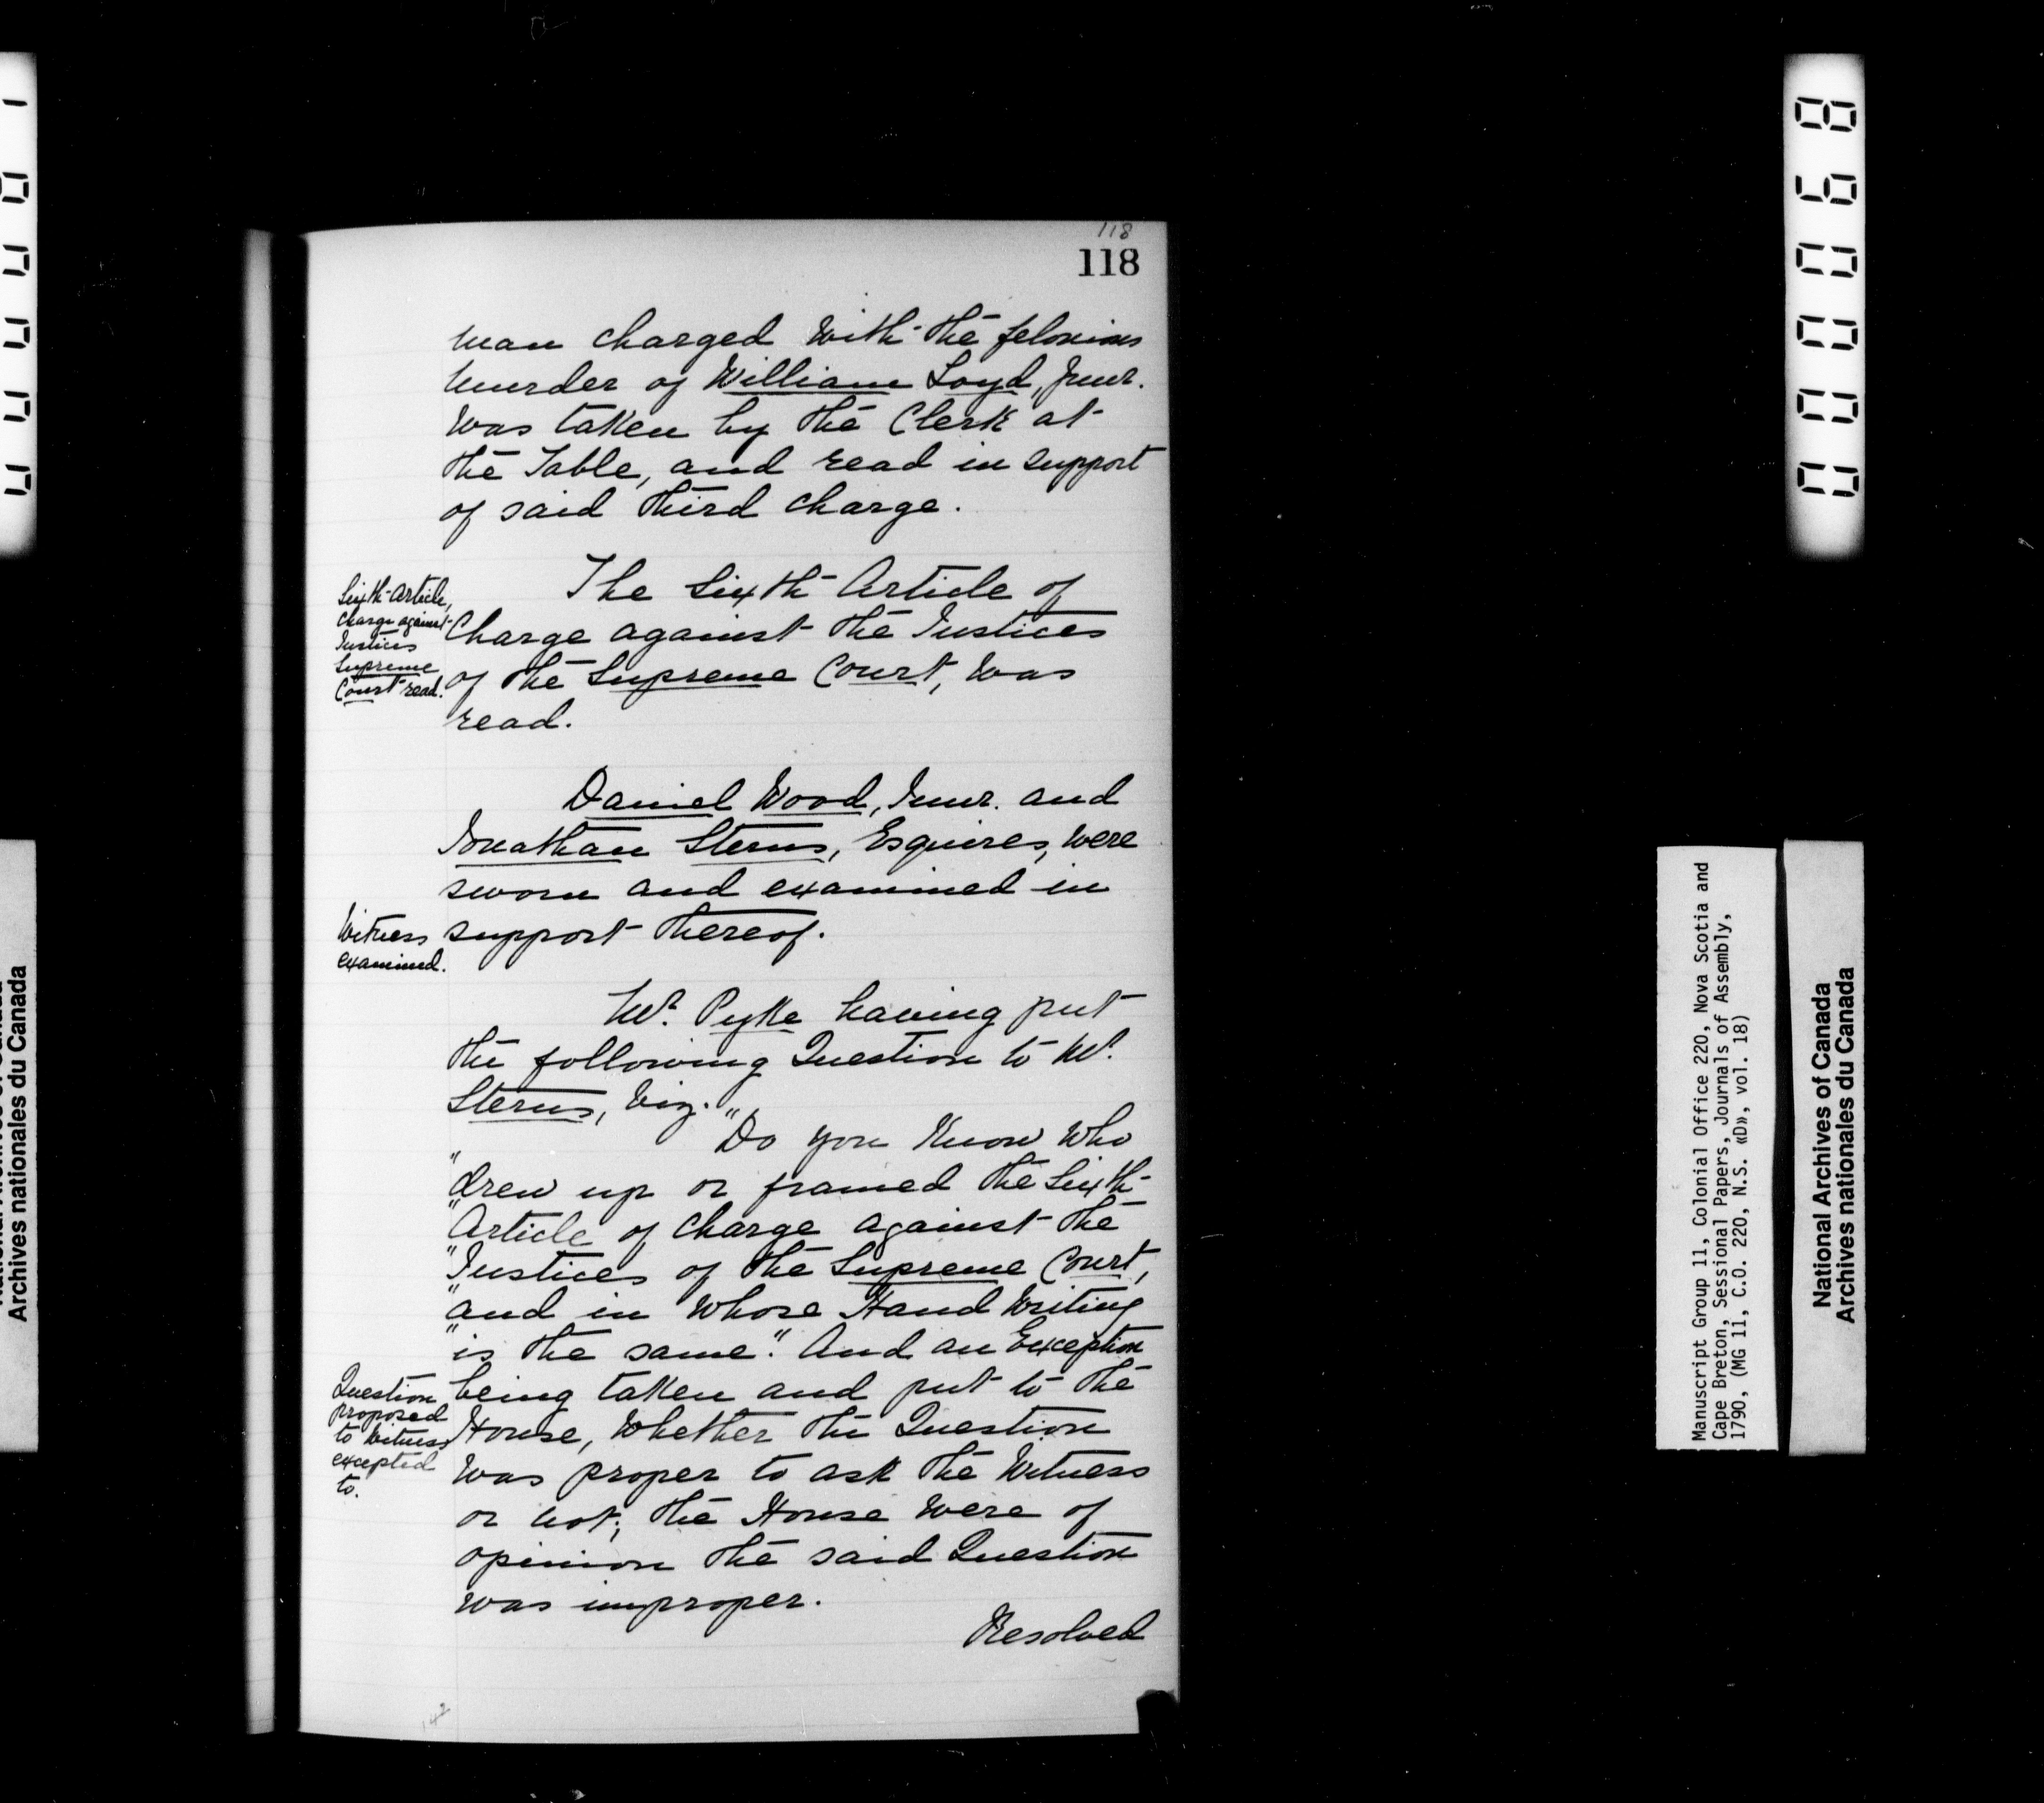 118
118
man charged with the felonious
murder of William Loyd, Junr.
was taken by the Clerk at
the Table, and read in support
of said third charge.
Sixth Article,
charge against
Justices
Supreme
Court read.
The Sixth Article of
Charge against the Justices
of the Supreme Court, was
read.
Daniel Wood, Junr. and
Jonathan Sterns, Esquires, were
sworn and examined in
support thereof.
Witness
examined.
Mr. Pyke having put
the following Question to Mr.
Sterns, viz. "
"Do you know who
"drew up or framed the Sixth
"Article of Charge against the
"Justices of the Supreme Court,
"and in whose Hand Writing
"is the same". And an Exception
being taken and put to the
House, whether the Question
was proper to ask the Witness
or not; the House were of
opinion the said Question
was improper.
Question
proposed
to witness
excepted
to.
Resolved
142
000068
Manuscript Group 11, Colonial Office 220, Nova Scotia and
Cape Breton, Sessional Papers, Journals of Assembly,
1790, (MG 11, C.O. 220, N.S. «D», vol. 18)
National Archives of Canada
Archives nationales du Canada
Archives nationales du Canada